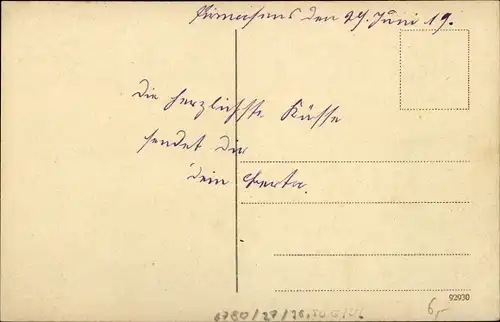 Pirmasens den 29. Juni 19.
Die herzlichste Küsse
sendet dir
dein Berta.
92930
6,-
6780/27/26